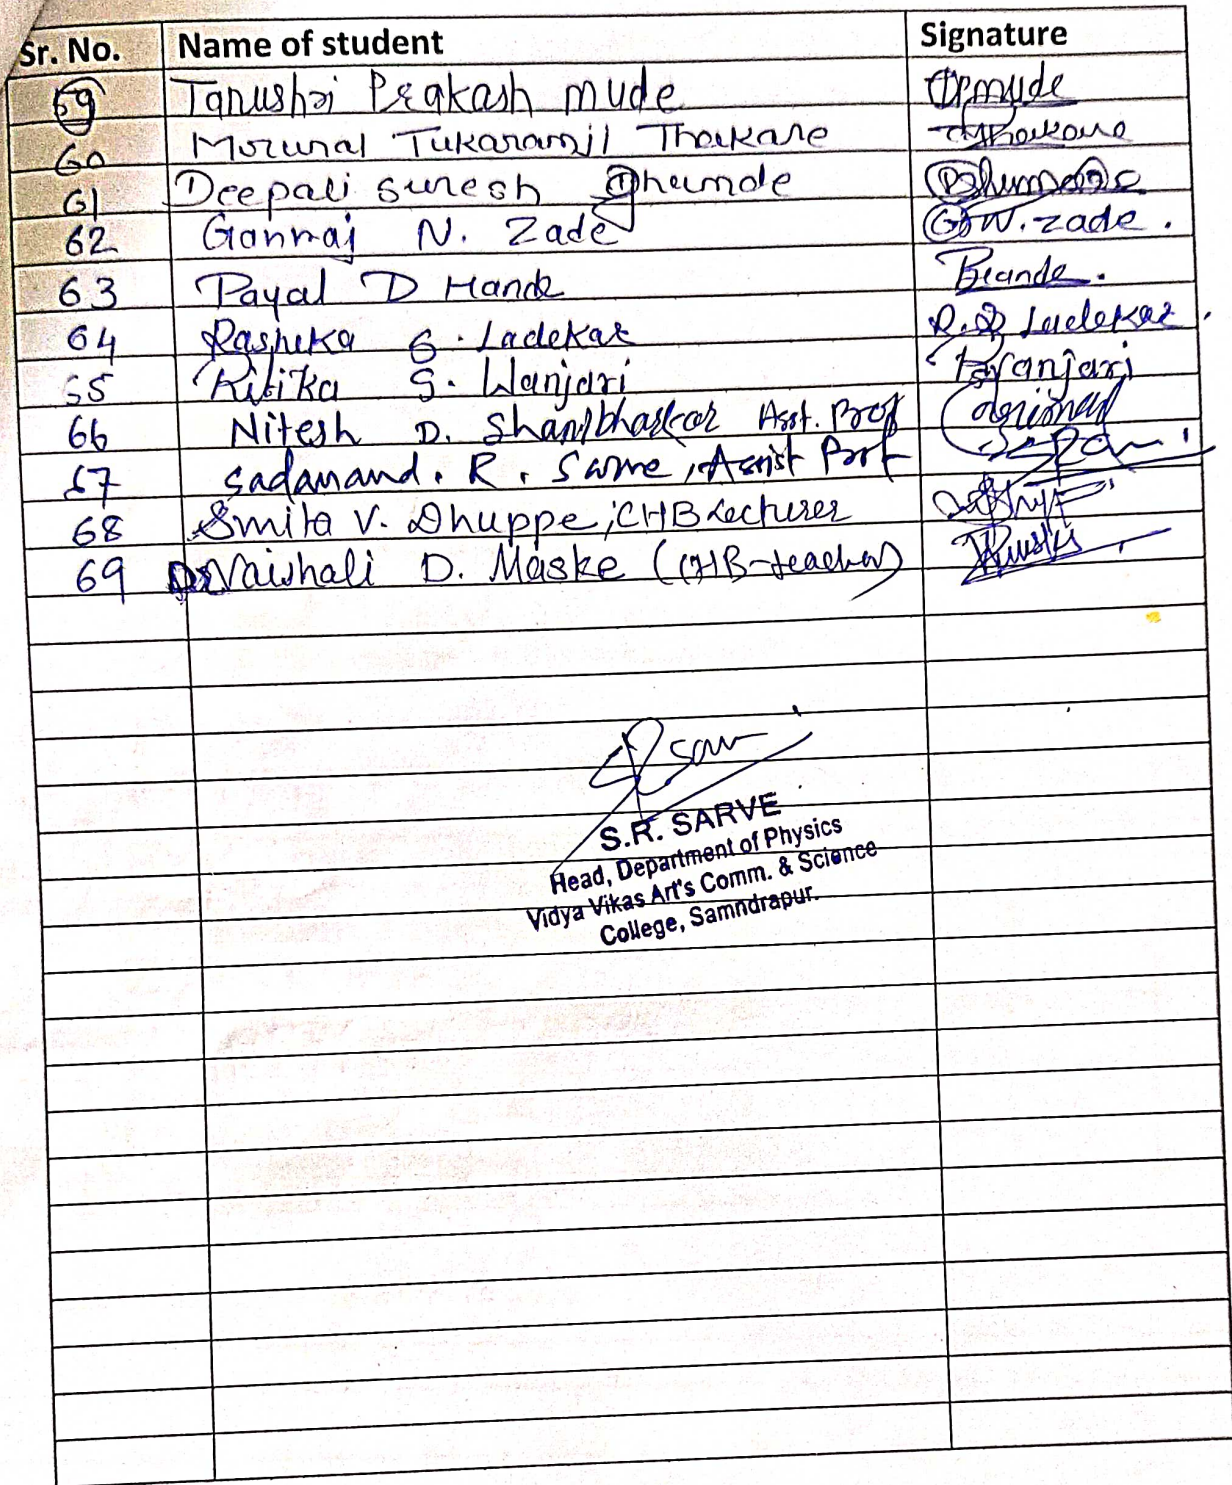 Sr. No. Name of student Signature
59 Tanushri Prakash mude TPmude
60 Mrunal Tukaramji Thakare Thakare
61 Deepali suresh Dhumde
62 Ganraj N. Zade G.N. zade.
63 Payal D Hande
64 Rashika G. Ladekar R. G Ladekar.
65 Kitika S. Wanjari
66 Nitesh D. Shambharkar Asst. Prof
67 Sadanand. R. Sarve, Assist Prof
68 Smita V. Dhuppe, CHB Lecturer
69 Vaishali D. Maske (CHB-teacher)
S.R. SARVE
Head, Department of Physics
Vidya Vikas Art's Comm. & Science
College, Samndrapur.